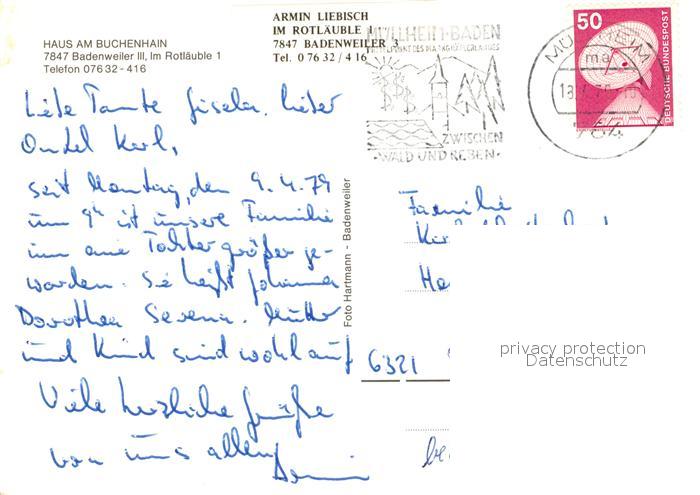 HAUS AM BUCHENHAIN
7847 Badenweiler III, Im Rotläuble 1
Telefon 07632-416
ARMIN LIEBISCH
IM ROTLÄUBLE
7847 BADENWEILER 3
Tel. 0 76 32 / 4 16
MÜLLHEIM-BADEN
MITTELPUNKT DES MARKGRÄFLERLANDES
ZWISCHEN
·WALD UND REBEN·
MÜLLHEIM
ma
784
50
DEUTSCHE BUNDESPOST
Liebe Tante Gisela, lieber
Onkel Karl,
seit Montag, den 9.4.79
um 9 ist unsere Familie
um eine Tochter größer ge-
worden. Sie heißt Johanna
Dorothea Verena. Mutter
und Kind sind wohlauf
Viele herzliche Grüße
von uns allen
Armin
Foto Hartmann - Badenweiler
Familie
6321
privacy protection
Datenschutz